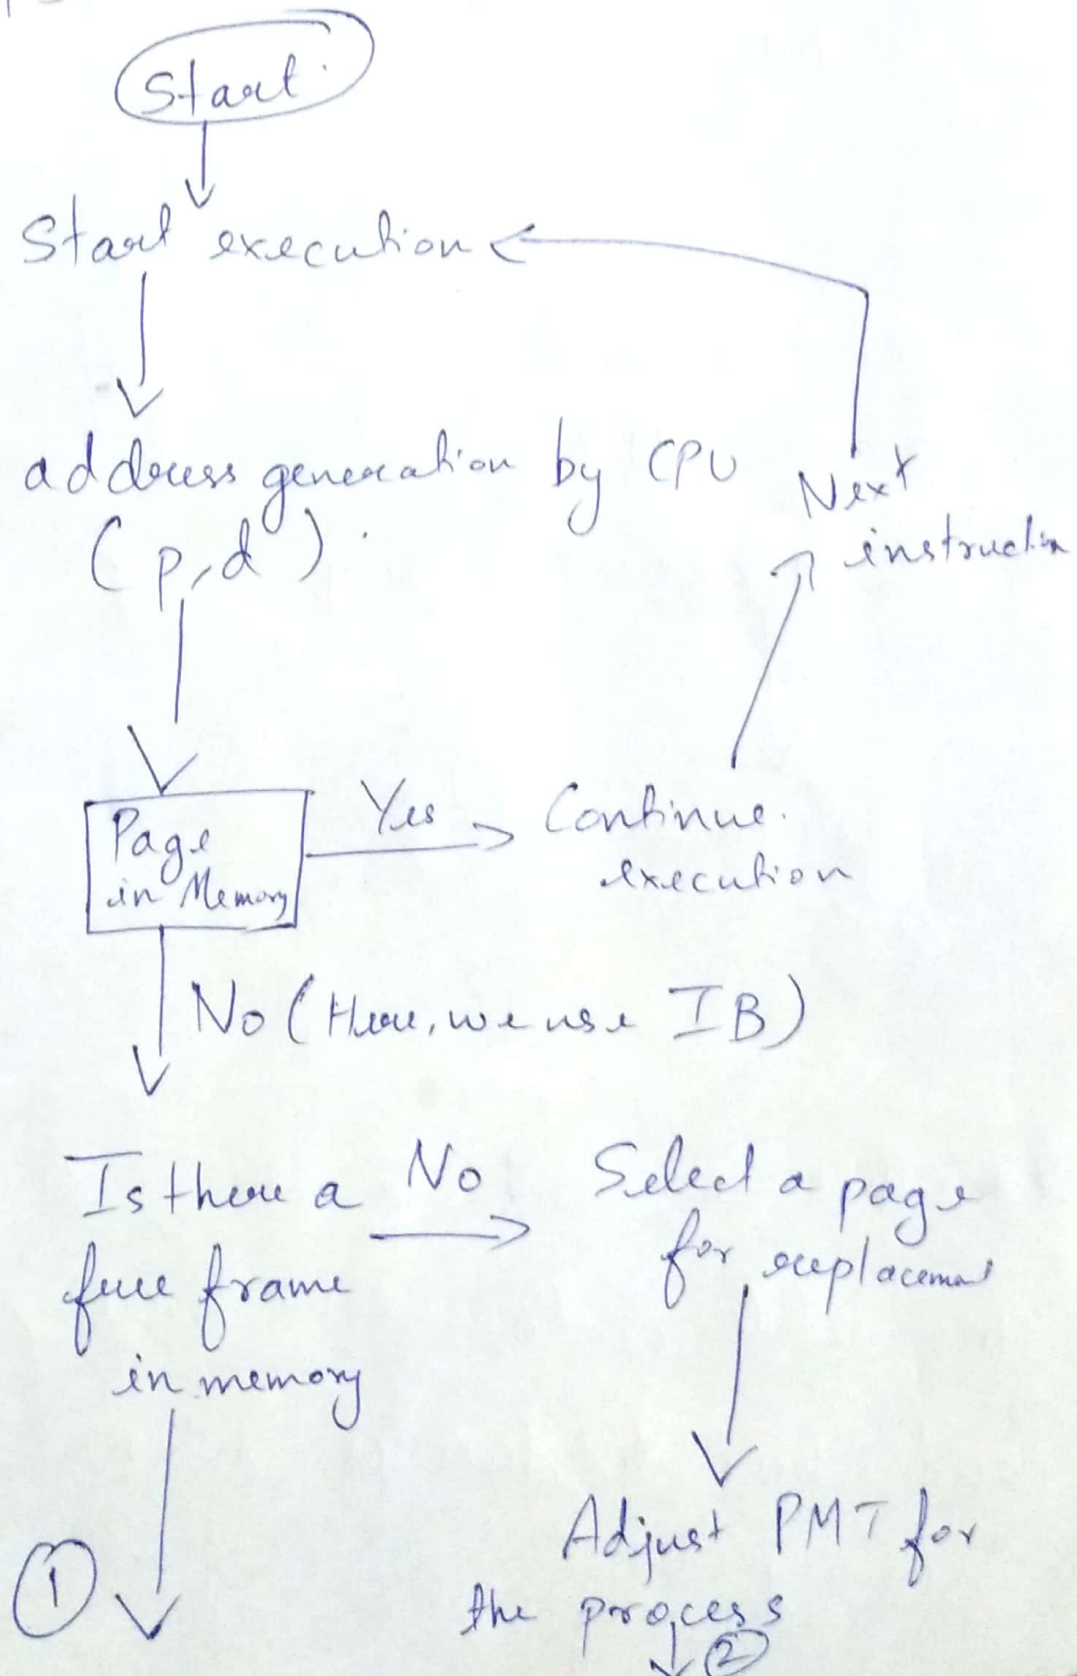 Start.
Start execution
address generation by CPU
(p,d).
Next
instruction
Page
in Memory
Yes
Continue.
execution
No (Here, we use IB)
Is there a
free frame
in memory
No
Select a page
for replacement
Adjust PMT for
the process
1
2